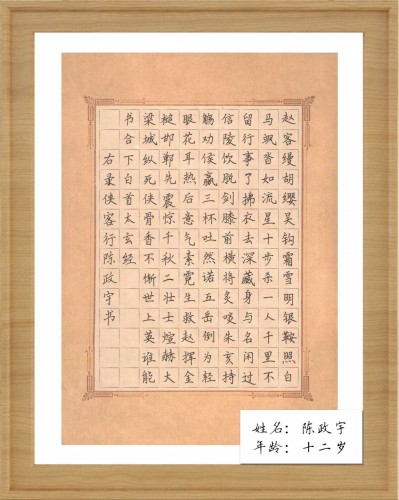 赵客缦胡缨吴钩霜雪明银鞍照白
马飒沓如流星十步杀一人千里不
留行事了拂衣去深藏身与名闲过
信陵饮脱剑膝前横将炙啖朱亥持
觞劝侯嬴三杯吐然诺五岳倒为轻
眼花耳热后意气素霓生救赵挥金
槌邯郸先震惊千秋二壮士煊赫大
梁城纵死侠骨香不惭世上英谁能
书合下白首太玄经
右录侠客行陈政宇书
姓名：陈政宇
年龄：十二岁